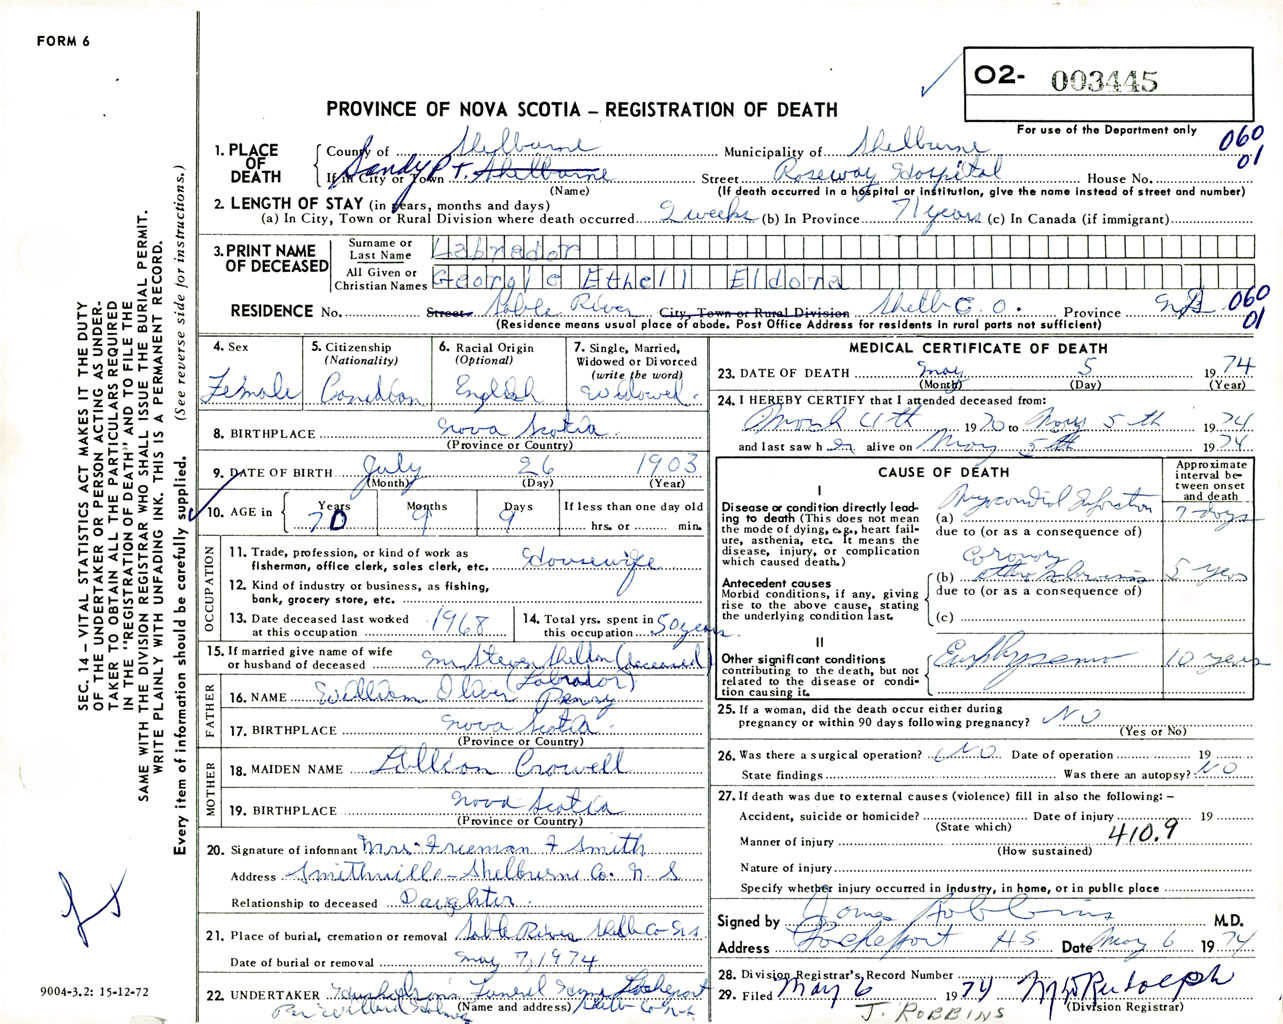 FORM 6
02- 003445
PROVINCE OF NOVA SCOTIA – REGISTRATION OF DEATH
For use of the Department only
060
01
1. PLACE OF DEATH
County of Shelburne Municipality of Shelburne
If in City or Town Sandy Pt. Shelburne Street Roseway Hospital House No.
(Name) (If death occurred in a hospital or institution, give the name instead of street and number)
2. LENGTH OF STAY (in years, months and days)
(a) In City, Town or Rural Division where death occurred 2 weeks (b) In Province 71 years (c) In Canada (if immigrant)
3. PRINT NAME OF DECEASED
Surname or Last Name Labrador
All Given or Christian Names Georgie Ethell Eldona
RESIDENCE No. Street Sable River City, Town or Rural Division Shelb C.O. Province N.S. 060
01
(Residence means usual place of abode. Post Office Address for residents in rural parts not sufficient)
4. Sex
Female
5. Citizenship (Nationality)
Canadian
6. Racial Origin (Optional)
English
7. Single, Married, Widowed or Divorced (write the word)
Widowed.
8. BIRTHPLACE Nova Scotia.
(Province or Country)
9. DATE OF BIRTH July 26 1903
(Month) (Day) (Year)
10. AGE in Years 70 Months 9 Days 9 If less than one day old
hrs. or min.
OCCUPATION
11. Trade, profession, or kind of work as fisherman, office clerk, sales clerk, etc. Housewife
12. Kind of industry or business, as fishing, bank, grocery store, etc.
13. Date deceased last worked at this occupation 1968
14. Total yrs. spent in this occupation 50 years.
15. If married give name of wife or husband of deceased Mr. Steven Sheldon (deceased)
(Labrador)
FATHER
16. NAME William Oliver Penny
17. BIRTHPLACE Nova Scotia
(Province or Country)
MOTHER
18. MAIDEN NAME Lillian Crowell
19. BIRTHPLACE Nova Scotia
(Province or Country)
20. Signature of informant Mrs. Freeman F Smith
Address Smithville – Shelburne Co. N. S
Relationship to deceased Daughter.
21. Place of burial, cremation or removal Sable River Shelb Co N.S.
Date of burial or removal May 7, 1974
22. UNDERTAKER Funeral Home Lockeport
Per Willard (Name and address) Shelb Co N.S.
MEDICAL CERTIFICATE OF DEATH
23. DATE OF DEATH May 5 1974
(Month) (Day) (Year)
24. I HEREBY CERTIFY that I attended deceased from:
March 4th 1970 to May 5th 1974
and last saw her alive on May 5th 1974
CAUSE OF DEATH
Approximate interval between onset and death
I
Disease or condition directly leading to death (This does not mean the mode of dying, e.g., heart failure, asthenia, etc. It means the disease, injury, or complication which caused death.)
(a) Myocardial Infarction 7 days
due to (or as a consequence of)
Antecedent causes
Morbid conditions, if any, giving rise to the above cause, stating the underlying condition last.
(b) Coronary 5 years
due to (or as a consequence of)
(c)
II
Other significant conditions contributing to the death, but not related to the disease or condition causing it.
Emphysema 10 years
25. If a woman, did the death occur either during pregnancy or within 90 days following pregnancy? NO
(Yes or No)
26. Was there a surgical operation? NO Date of operation 19
State findings Was there an autopsy? NO
27. If death was due to external causes (violence) fill in also the following: –
Accident, suicide or homicide? Date of injury 19
(State which)
410.9
Manner of injury
(How sustained)
Nature of injury
Specify whether injury occurred in industry, in home, or in public place
Signed by James Robbins M.D.
Address Lockeport N.S. Date May 6 1974
28. Division Registrar's Record Number
29. Filed May 6 1974 M W Rudolph
(Division Registrar)
J. ROBBINS
SEC. 14 – VITAL STATISTICS ACT MAKES IT THE DUTY
OF THE UNDERTAKER OR PERSON ACTING AS UNDER-
TAKER TO OBTAIN ALL THE PARTICULARS REQUIRED
IN THE "REGISTRATION OF DEATH" AND TO FILE THE
SAME WITH THE DIVISION REGISTRAR WHO SHALL ISSUE THE BURIAL PERMIT.
WRITE PLAINLY WITH UNFADING INK. THIS IS A PERMANENT RECORD.
Every item of information should be carefully supplied. (See reverse side for instructions.)
9004-3.2: 15-12-72